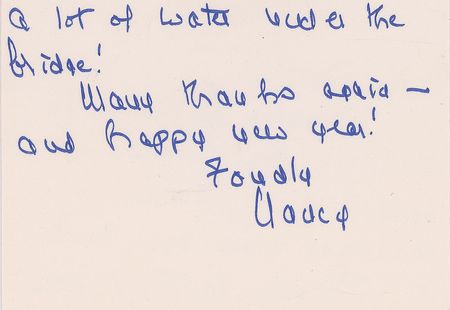 a lot of water under the
bridge!
Many thanks again —
and happy new year!
Fondly
Nancy